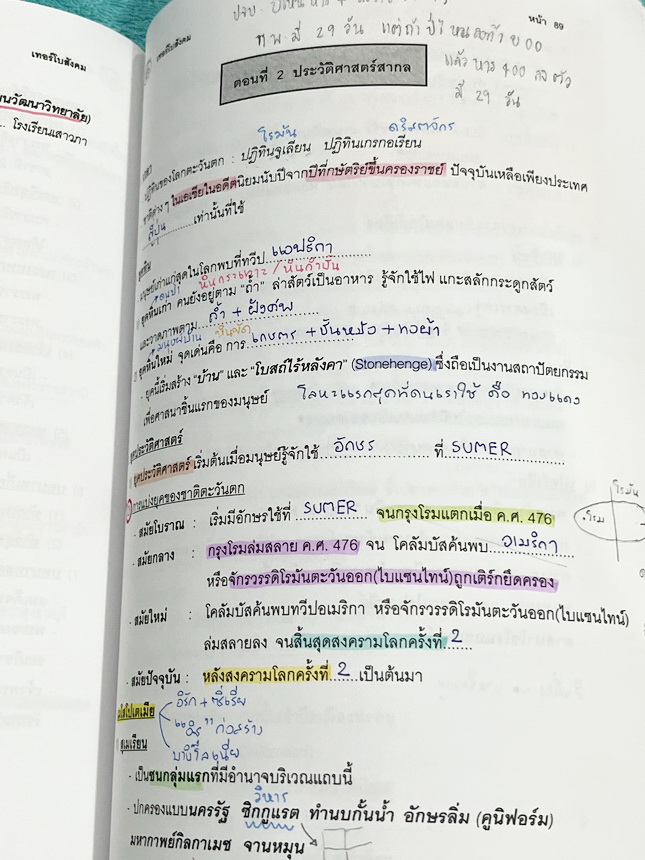 เทอร์โบสังคม
นวัฒนาวิทยาลัย)
... โรงเรียนเสาวภา
หน้า 89
เทอร์โบสังคม
ก.พ. มี 29 วัน แต่ถ้าปีไหนลงท้าย 00
แล้วหาร 400 ลงตัว
มี 29 วัน
ตอนที่ 2 ประวัติศาสตร์สากล
โรมัน คริสตจักร
ปฏิทินของโลกตะวันตก : ปฏิทินจูเลียน ปฏิทินเกรกอเรียน
ชาติต่างๆ ในเอเชียในอดีตนิยมนับปีจากปีที่กษัตริย์ขึ้นครองราชย์ ปัจจุบันเหลือเพียงประเทศ
ญี่ปุ่น เท่านั้นที่ใช้
มนุษย์เก่าแก่สุดในโลกพบที่ทวีป แอฟริกา
หินกะเทาะ/หินกำปั้น
ยุคหินเก่า คนยังอยู่ตาม "ถ้ำ" ล่าสัตว์เป็นอาหาร รู้จักใช้ไฟ แกะสลักกระดูกสัตว์
และวาดภาพตาม ถ้ำ + ฝังศพ
หินขัด
ยุคหินใหม่ จุดเด่นคือ การ เกษตร + ปั้นหม้อ + ทอผ้า
- ยุคนี้เริ่มสร้าง "บ้าน" และ "โบสถ์ไร้หลังคา" (Stonehenge) ซึ่งถือเป็นงานสถาปัตยกรรม
เพื่อศาสนาชิ้นแรกของมนุษย์ โลหะแรกสุดที่คนเราใช้ คือ ทองแดง
ยุคประวัติศาสตร์
ยุคประวัติศาสตร์ เริ่มต้นเมื่อมนุษย์รู้จักใช้ อักษร ที่ SUMER
การแบ่งยุคของชาติตะวันตก
โรมัน
โรม
- สมัยโบราณ : เริ่มมีอักษรใช้ที่ SUMER จนกรุงโรมแตกเมื่อ ค.ศ. 476
- สมัยกลาง : กรุงโรมล่มสลาย ค.ศ. 476 จน โคลัมบัสค้นพบ อเมริกา
หรือจักรวรรดิโรมันตะวันออก(ไบแซนไทน์)ถูกเติร์กยึดครอง
- สมัยใหม่ : โคลัมบัสค้นพบทวีปอเมริกา หรือจักรวรรดิโรมันตะวันออก(ไบแซนไทน์)
ล่มสลายลง จนสิ้นสุดสงครามโลกครั้งที่ 2
- สมัยปัจจุบัน : หลังสงครามโลกครั้งที่ 2 เป็นต้นมา
อิรัก + ซีเรีย
เมโสโปเตเมีย
"อิฐ" ก่อสร้าง
สุเมเรียน
บาบิโลเนีย
- เป็นชนกลุ่มแรกที่มีอำนาจบริเวณแถบนี้
วิหาร
- ปกครองแบบนครรัฐ ซิกกูแรต ทำนบกั้นน้ำ อักษรลิ่ม (คูนิฟอร์ม)
มหากาพย์กิลกาเมช จานหมุน